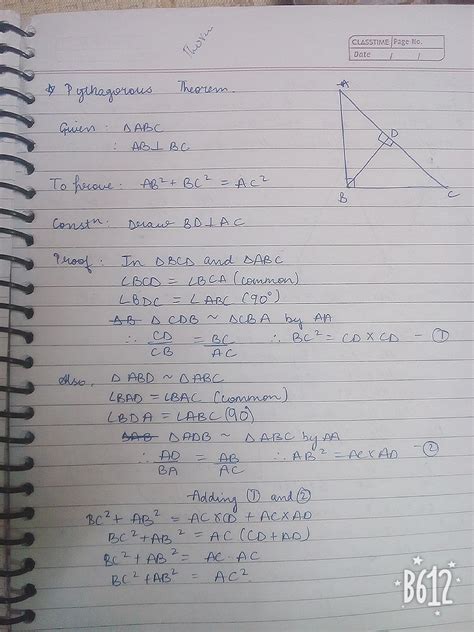 Theorem
CLASSTIME Page No.
Date / /
Pythagorous Theorem.
Given : △ABC
: AB⊥BC
To prove: AB² + BC² = AC²
Constⁿ: Draw BD⊥AC
A
D
B
C
Proof : In △BCD and △ABC
∠BCD = ∠BCA (common)
∠BDC = ∠ABC (90°)
△B △CDB ~ △CBA by AA
∴ CD/CB = BC/AC ∴ BC² = CD×CD - ①
Also, △ABD ~ △ABC
∠BAD = ∠BAC (common)
∠BDA = ∠ABC (90°)
△AB △ADB ~ △ABC by AA
∴ AD/BA = AB/AC ∴ AB² = AC×AD - ②
Adding ① and ②
BC² + AB² = AC×CD + AC×AD
BC² + AB² = AC (CD+AD)
BC² + AB² = AC·AC
BC² + AB² = AC².
B612